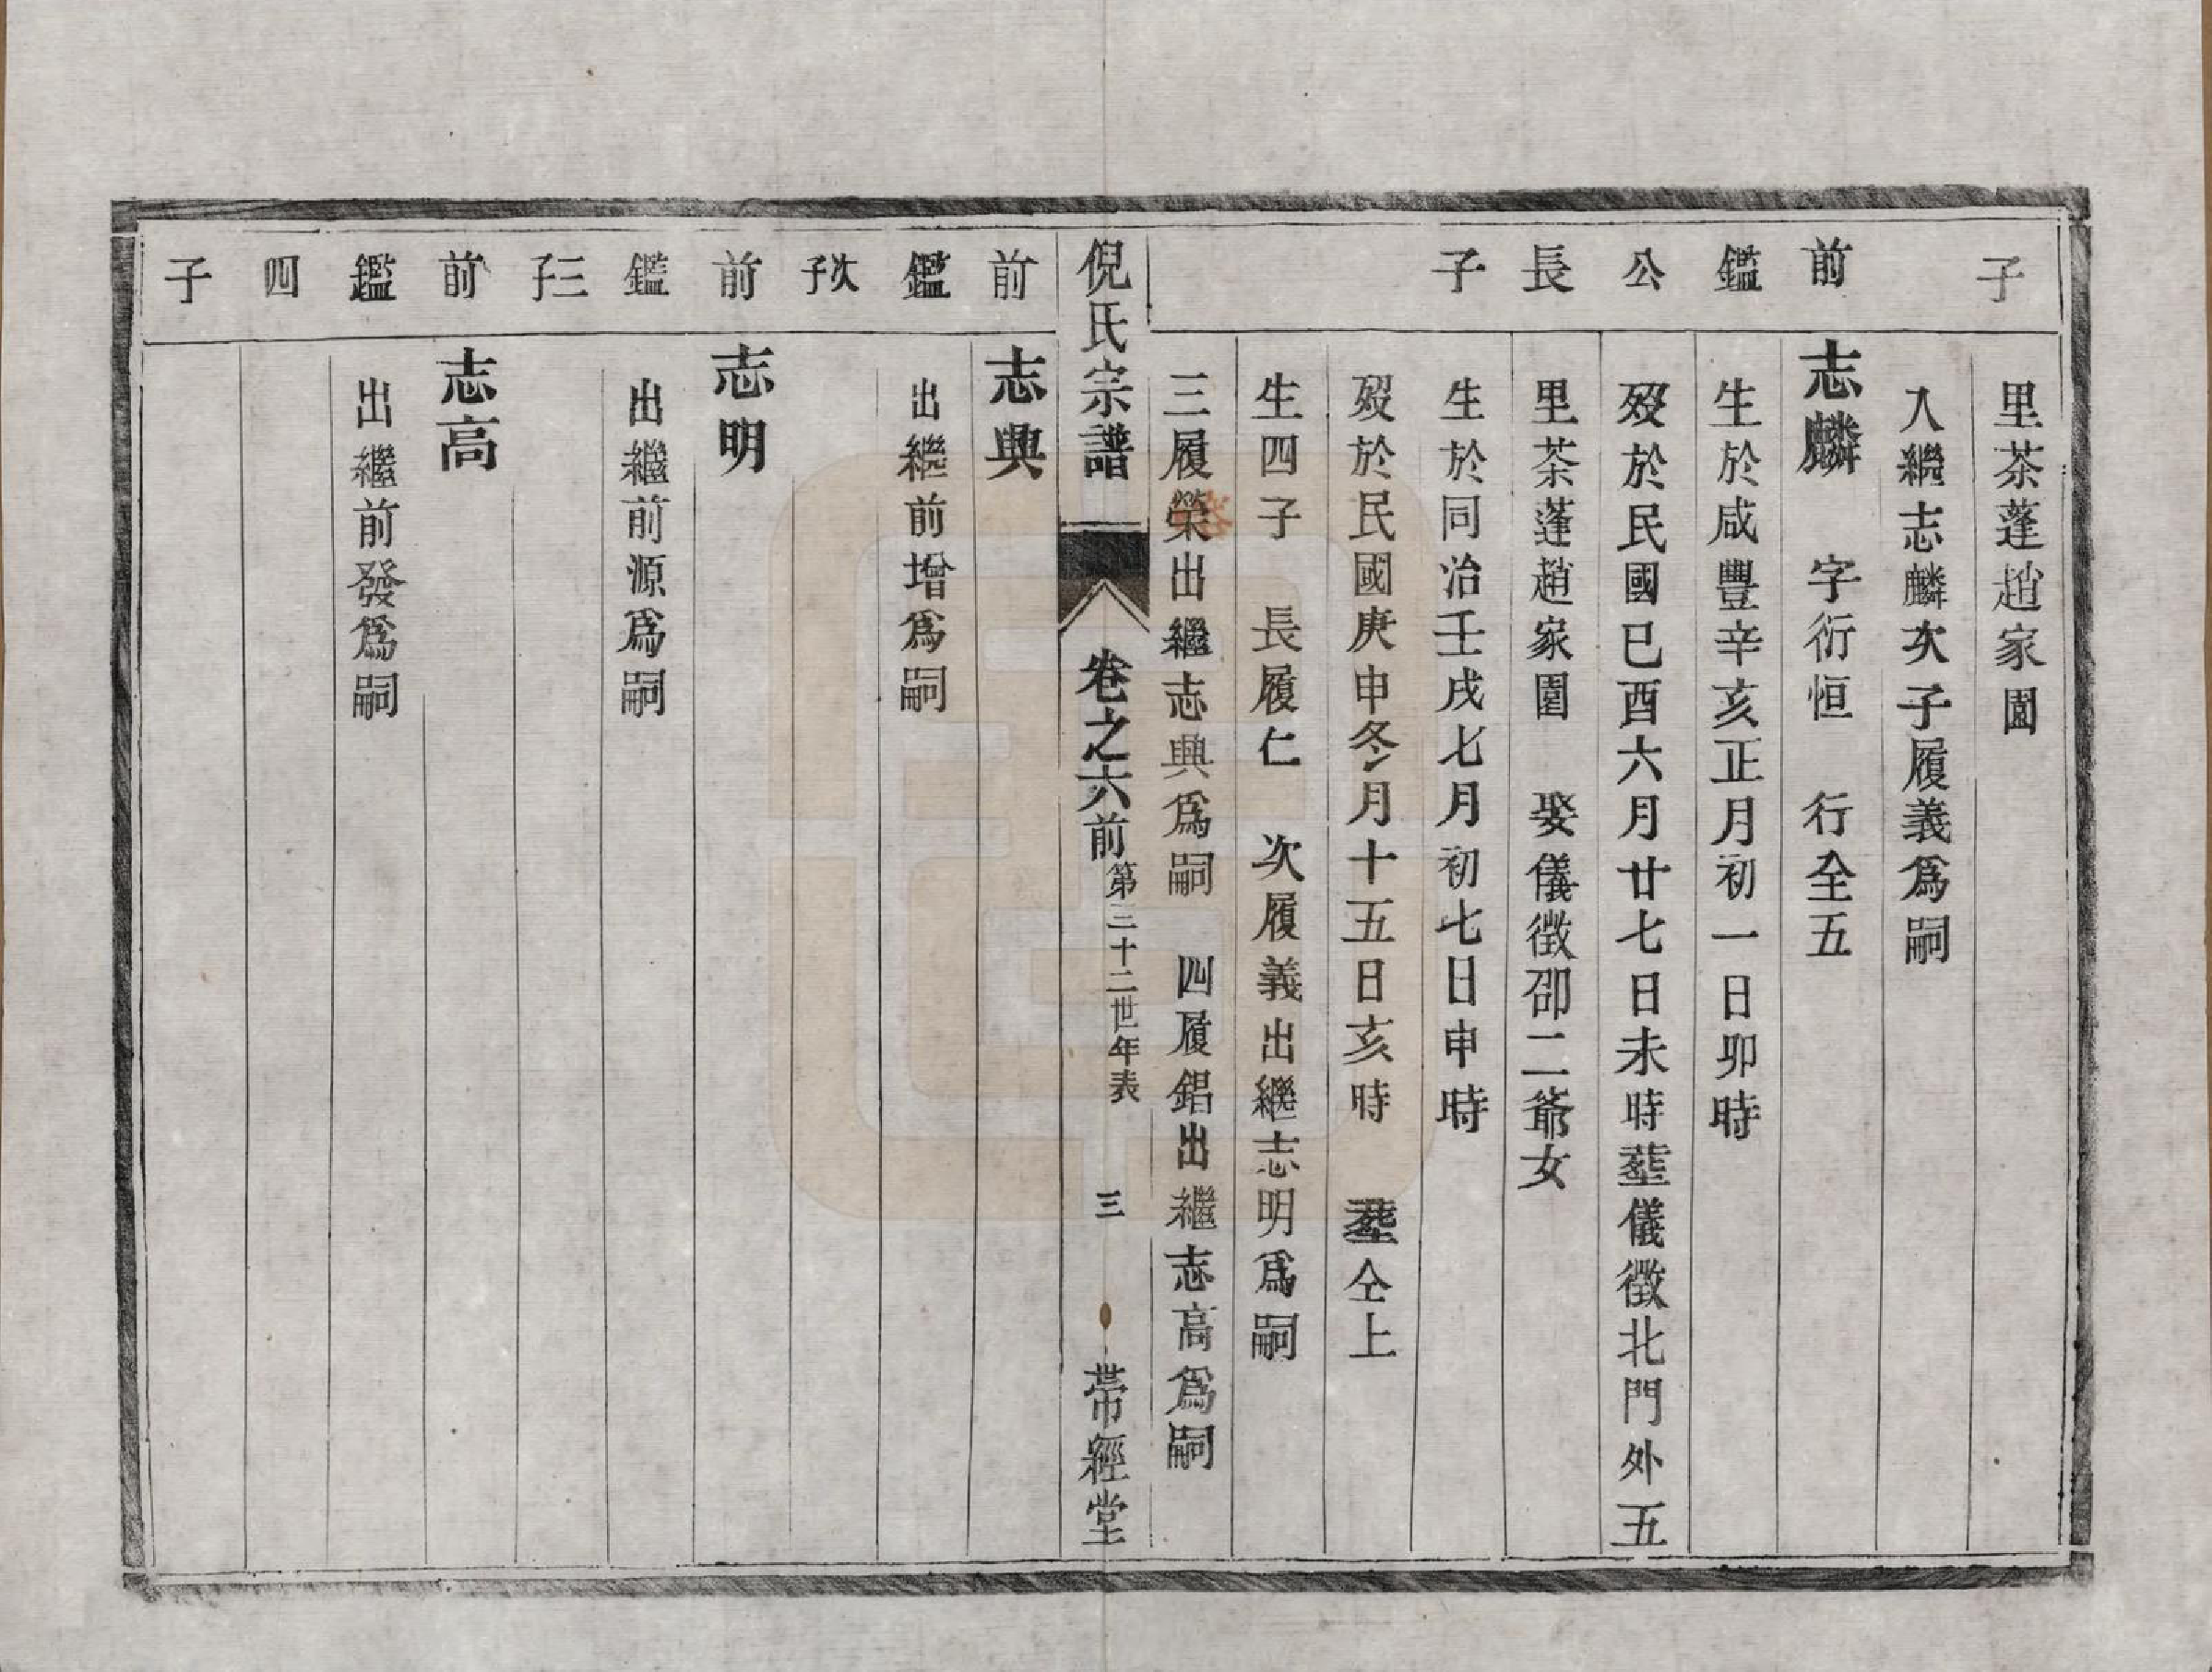 子
里茶蓬趙家園
入繼志麟次子履義爲嗣
前鑑公長子
志麟　字衍恒　行全五
生於咸豐辛亥正月初一日卯時
歿於民國已酉六月廿七日未時塟儀徵北門外五
里茶蓬趙家園　娶儀徵邵二爺女
生於同治壬戌七月初七日申時
歿於民國庚申冬月十五日亥時　塟仝上
生四子　長履仁　次履義出繼志明爲嗣
三履榮出繼志典爲嗣　四履錩出繼志高爲嗣
倪氏宗譜　卷之六前　第三十二世年表　三　帶經堂
前鑑次子
志典
出繼前增爲嗣
前鑑三子
志明
出繼前源爲嗣
前鑑四子
志高
出繼前發爲嗣